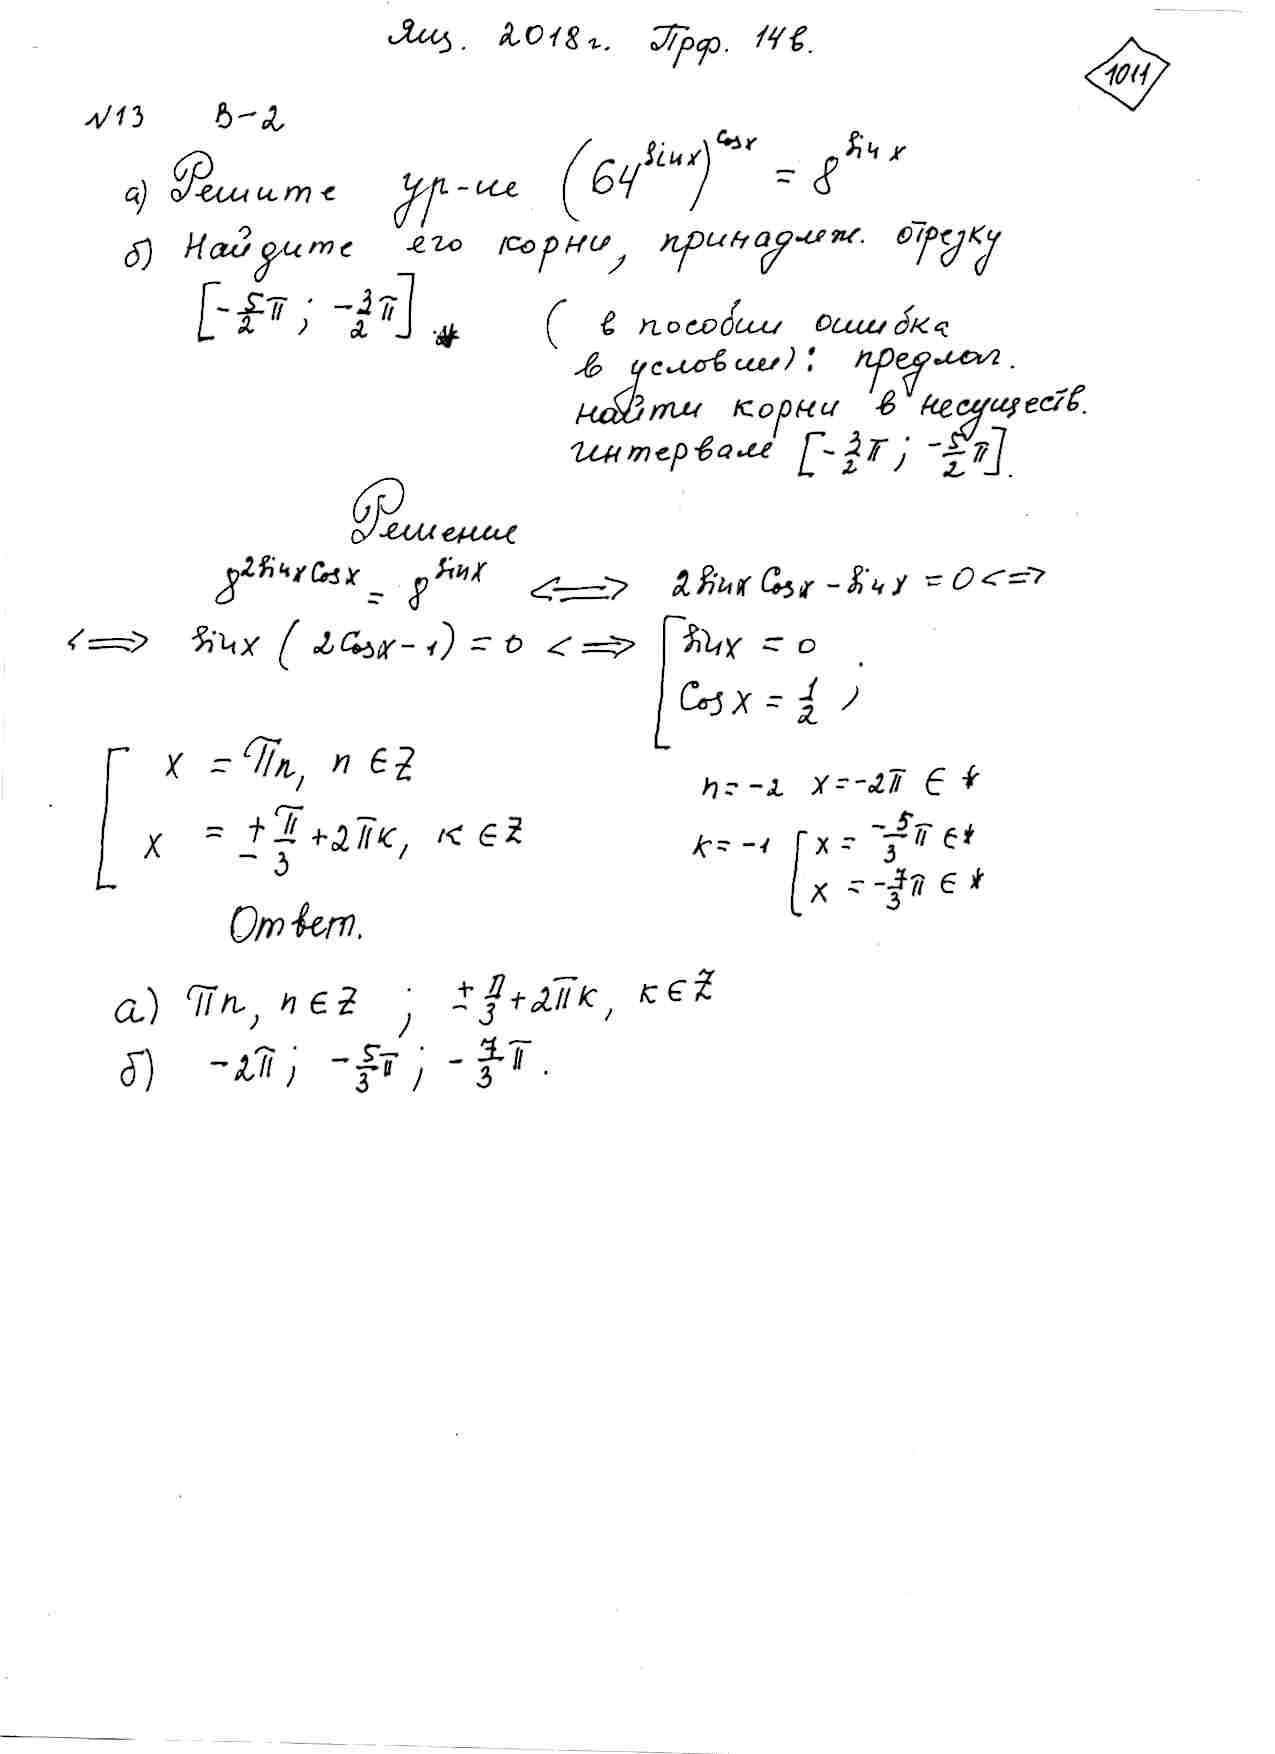 Ящ. 2018г. Прф. 14в.
1011
№13 В-2
а) Решите ур-ие (64^sinx)^cosx = 8^sinx
б) Найдите его корни, принадлеж. отрезку
[-5/2π; -3/2π]. * (в пособии ошибка
в условии): предлаг.
найти корни в несуществ.
интервале [-3/2π; -5/2π].
Решение
8^2sinxCosx = 8^sinx <=> 2sinxCosx - sinx = 0 <=>
<=> sinx(2Cosx-1) = 0 <=> [sinx = 0
Cosx = 1/2 ;
[x = πn, n∈Z
x = ±π/3 + 2πk, k∈Z
n=-2 x=-2π ∈ *
k=-1 [x = -5/3π ∈ *
x = -7/3π ∈ *
Ответ.
а) πn, n∈Z ; ±π/3+2πk, k∈Z
б) -2π; -5/3π; -7/3π.